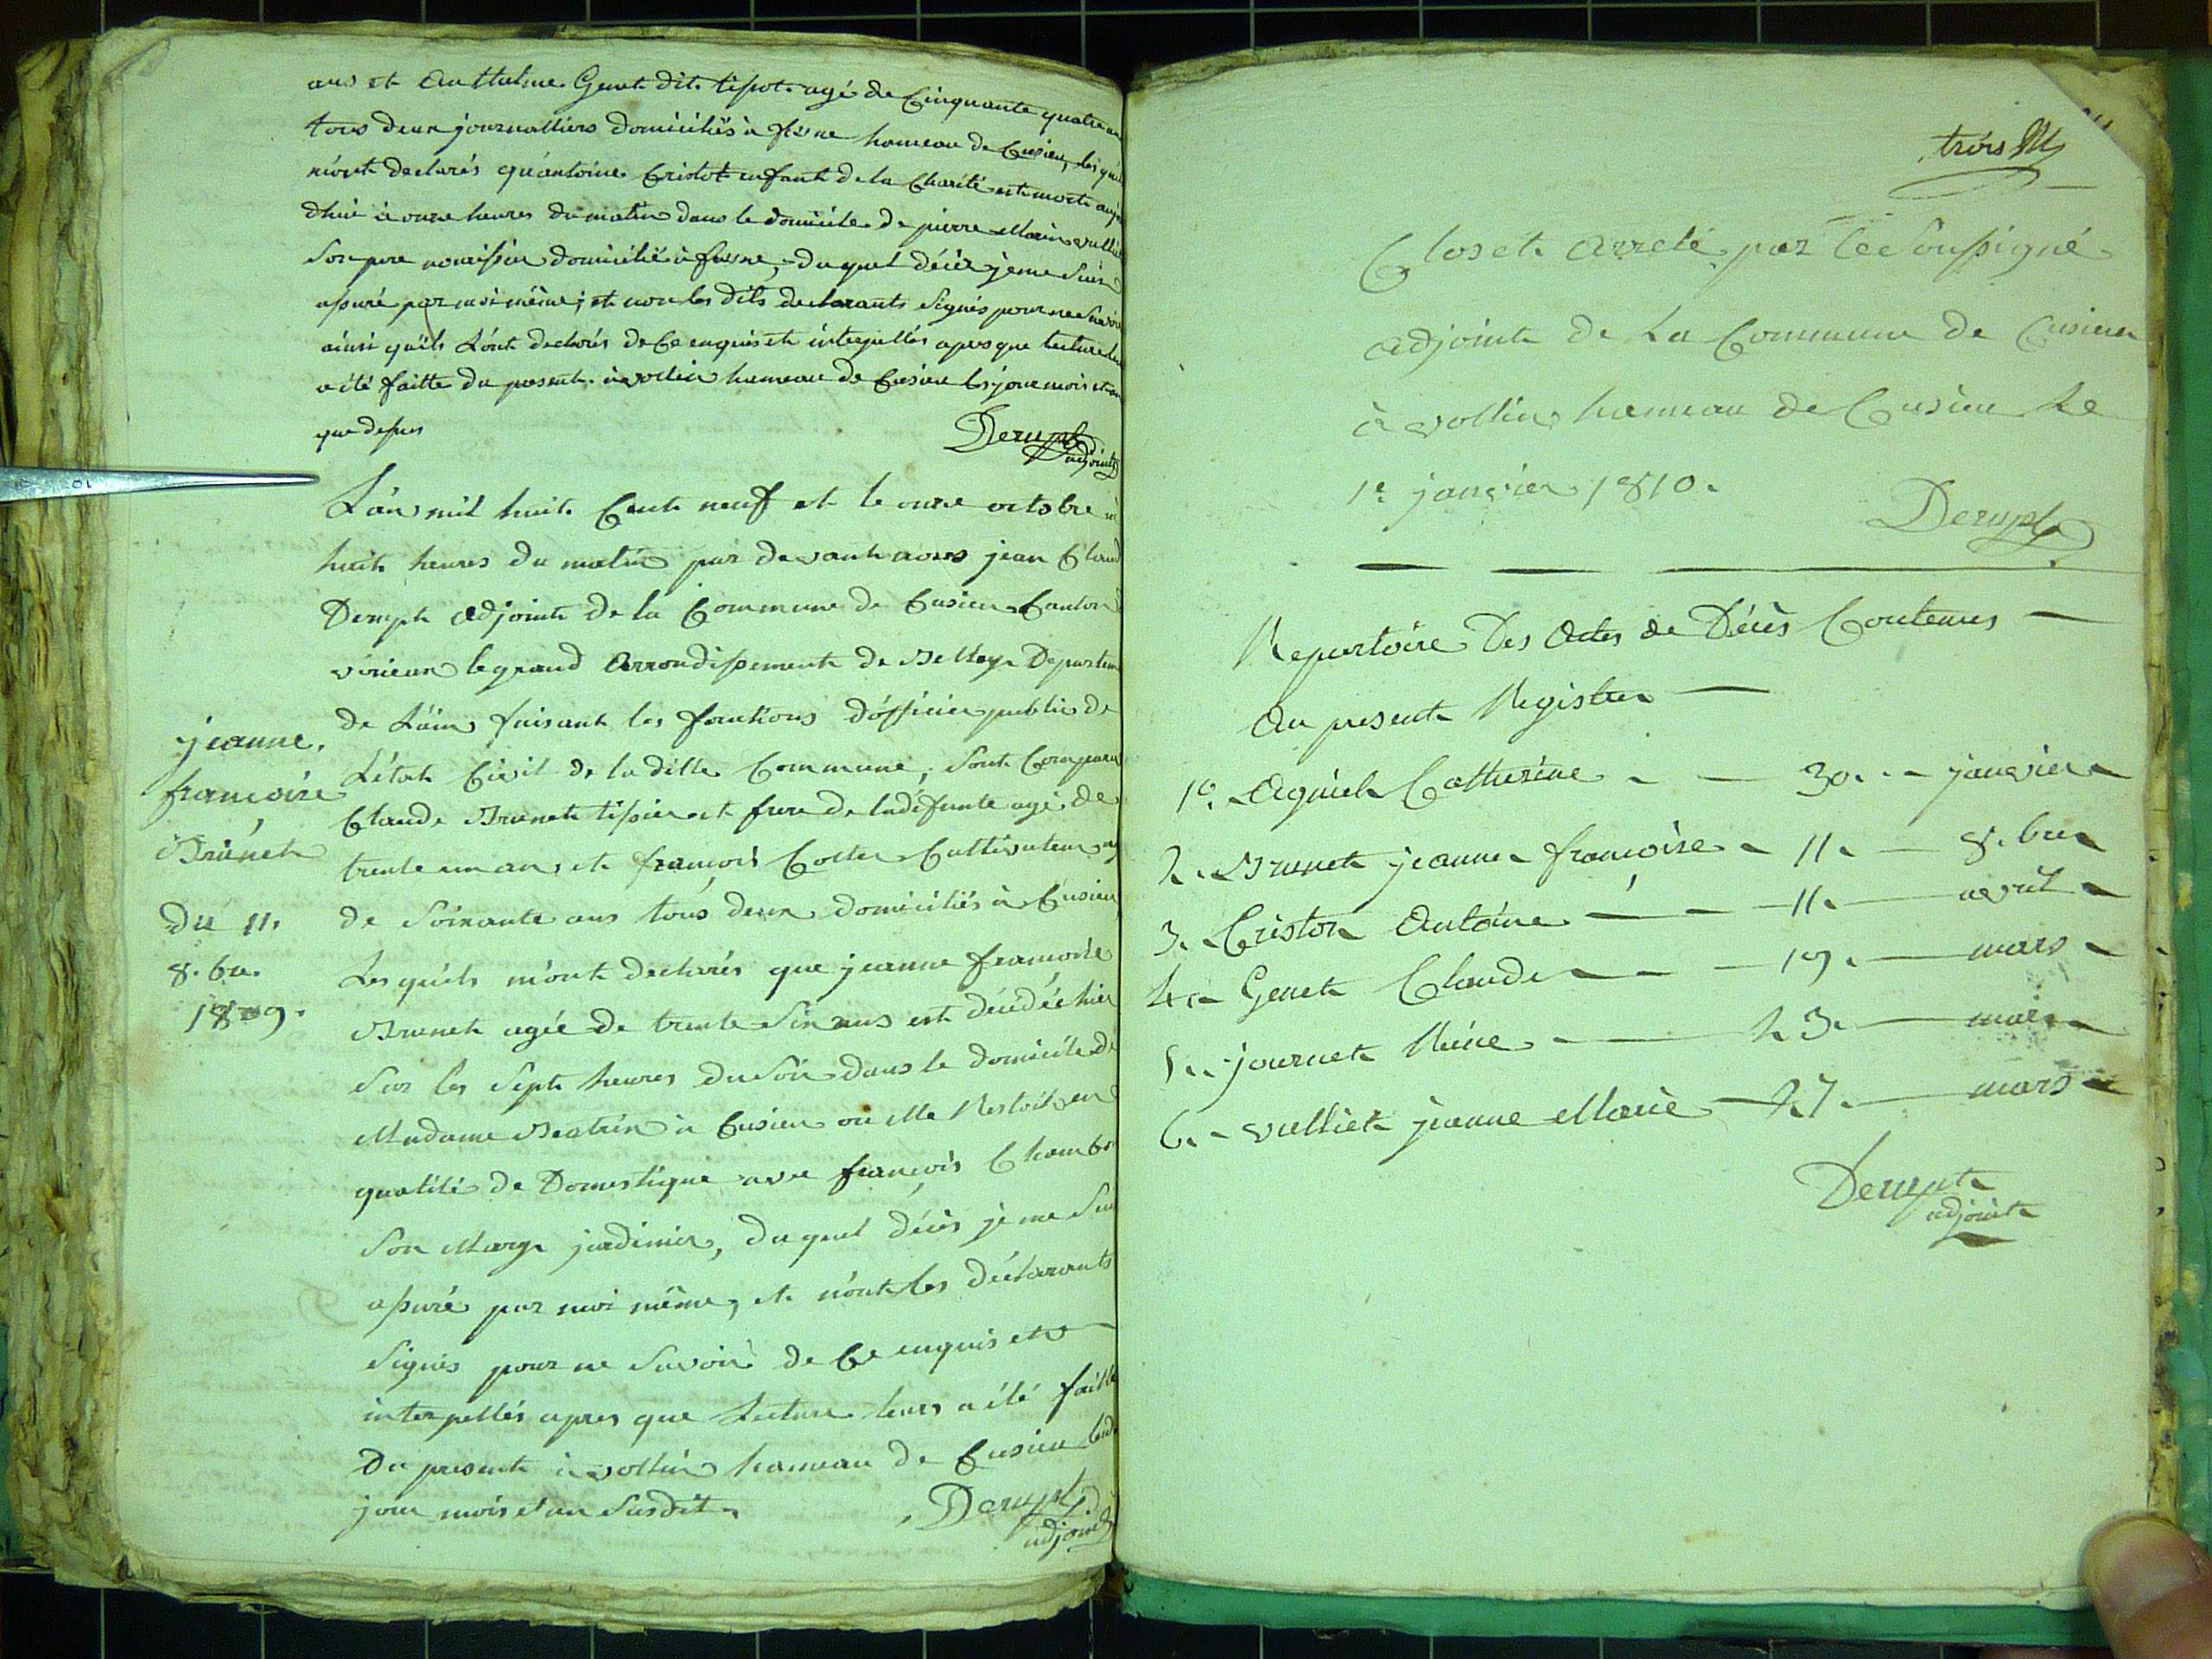 ans et Anthelme Genet dit tipot agé de Cinquante quatre ans
tous deux journalliers domiciliés à fusne hameau de Cusieu, les quels
m'ont declarés qu'antoine Cristot enfant de la Charité est mort aujour
dhui à onze heures du matin dans le domicile de pierre Marin vulliet
Son pere nouricier domicilié à fusne, du quel décès je me suis
assuré par moi même; et non les dits declarants signés pour ne savoir
ainsi quils l'ont declarés de Ce enquis et interpellés apres que lecture leur
a été faitte du present à vollin hameau de Cusieu les jour mois et an
que dessus
Derupt
adjoint
L'an mil huit Cent neuf et le onze octobre à
huit heures du matin par devant nous jean Claude
Derupt adjoint de la Commune de Cusieu Canton
virieux le grand Arrondissement de Belley Departement
de L'ain faisant les fonctions d'officier public de
L'état Civil de la ditte Commune, sont Comparus
Claude Brunet tissier et frere de la défunte agé de
trente un ans et françois Cotter Cultivateur agé
de Soixante ans tous deux domiciliés à Cusieu
Les quels m'ont declarés que jeanne francoise
Brunet agée de trente six ans est décédée hier
sur les sept heures du soir dans le domicile de
Madame à Cusieu ou elle Restoit en
qualité de Domestique avec françois
Son Mary jardinier, du quel décès je me suis
assuré par moi même, et n'ont les déclarants
signés pour ne savoir de Ce enquis et
interpellés apres que Lecture leurs a été faitte
Du present à vollin hameau de Cusieu les
jour mois et an susdit.
Derupt
adjoint
jeanne
francoise
Brunet
du 11.
8.bre
1809.
trois
Clos et Arreté par le Soussigné
adjoint de La Commune de Cusieu
à vollin hameau de Cusieu Le
1e janvier 1810.
Derupt
Repertoire Des Actes de Décès Contenus
Au present Registre
1o. Aguiet Catherine - 30. - janvier
2. Brunet jeanne francoise - 11. - 8.bre
3. Criston Antoine - 11. - avril
4. Genet Claude - 19. - mars
5. journet Reine - 23. - mai
6. vulliet jeanne Marie - 27. - mars
Derupt
adjoint